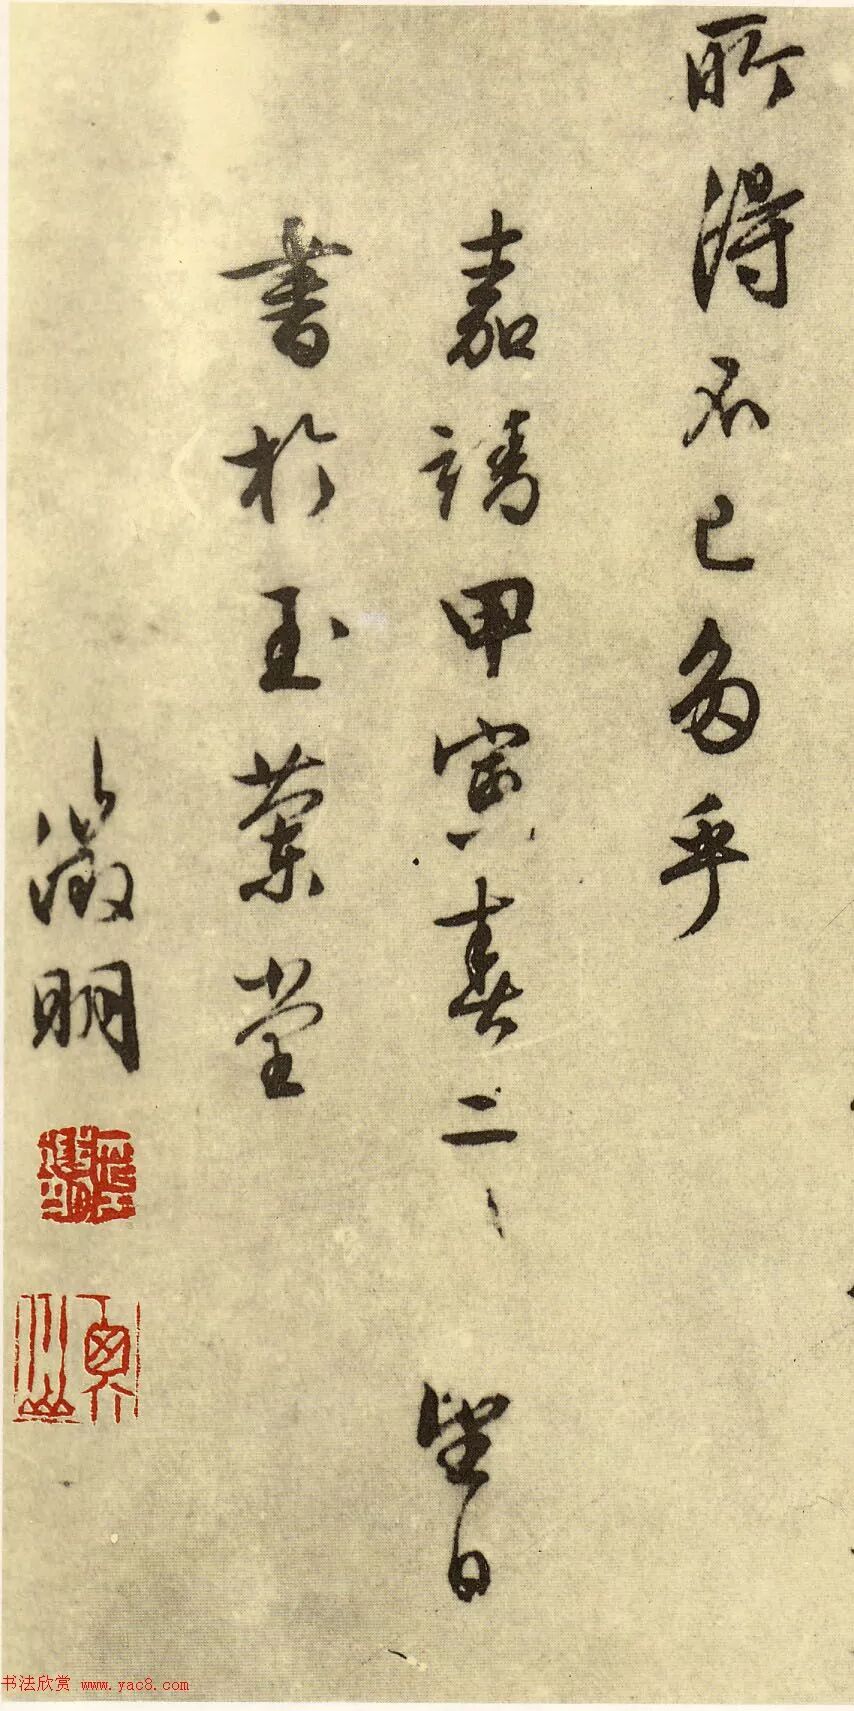 所得不已多乎
嘉靖甲寅春二 望日
書於玉蘭堂
徵明
衡山
书法欣赏 www.yac8.com